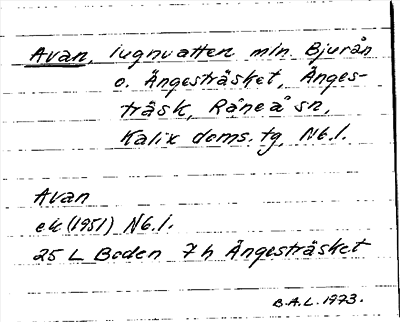 Avan, lugnvatten mln. Bjurån
o. Ängesträsket, Änges-
träsk, Råneå sn,
Kalix doms. tg, Nb.l.
Avan
ek (1951) Nb.l.
25 L Boden 7 h Ängesträsket
B.A.L. 1973.